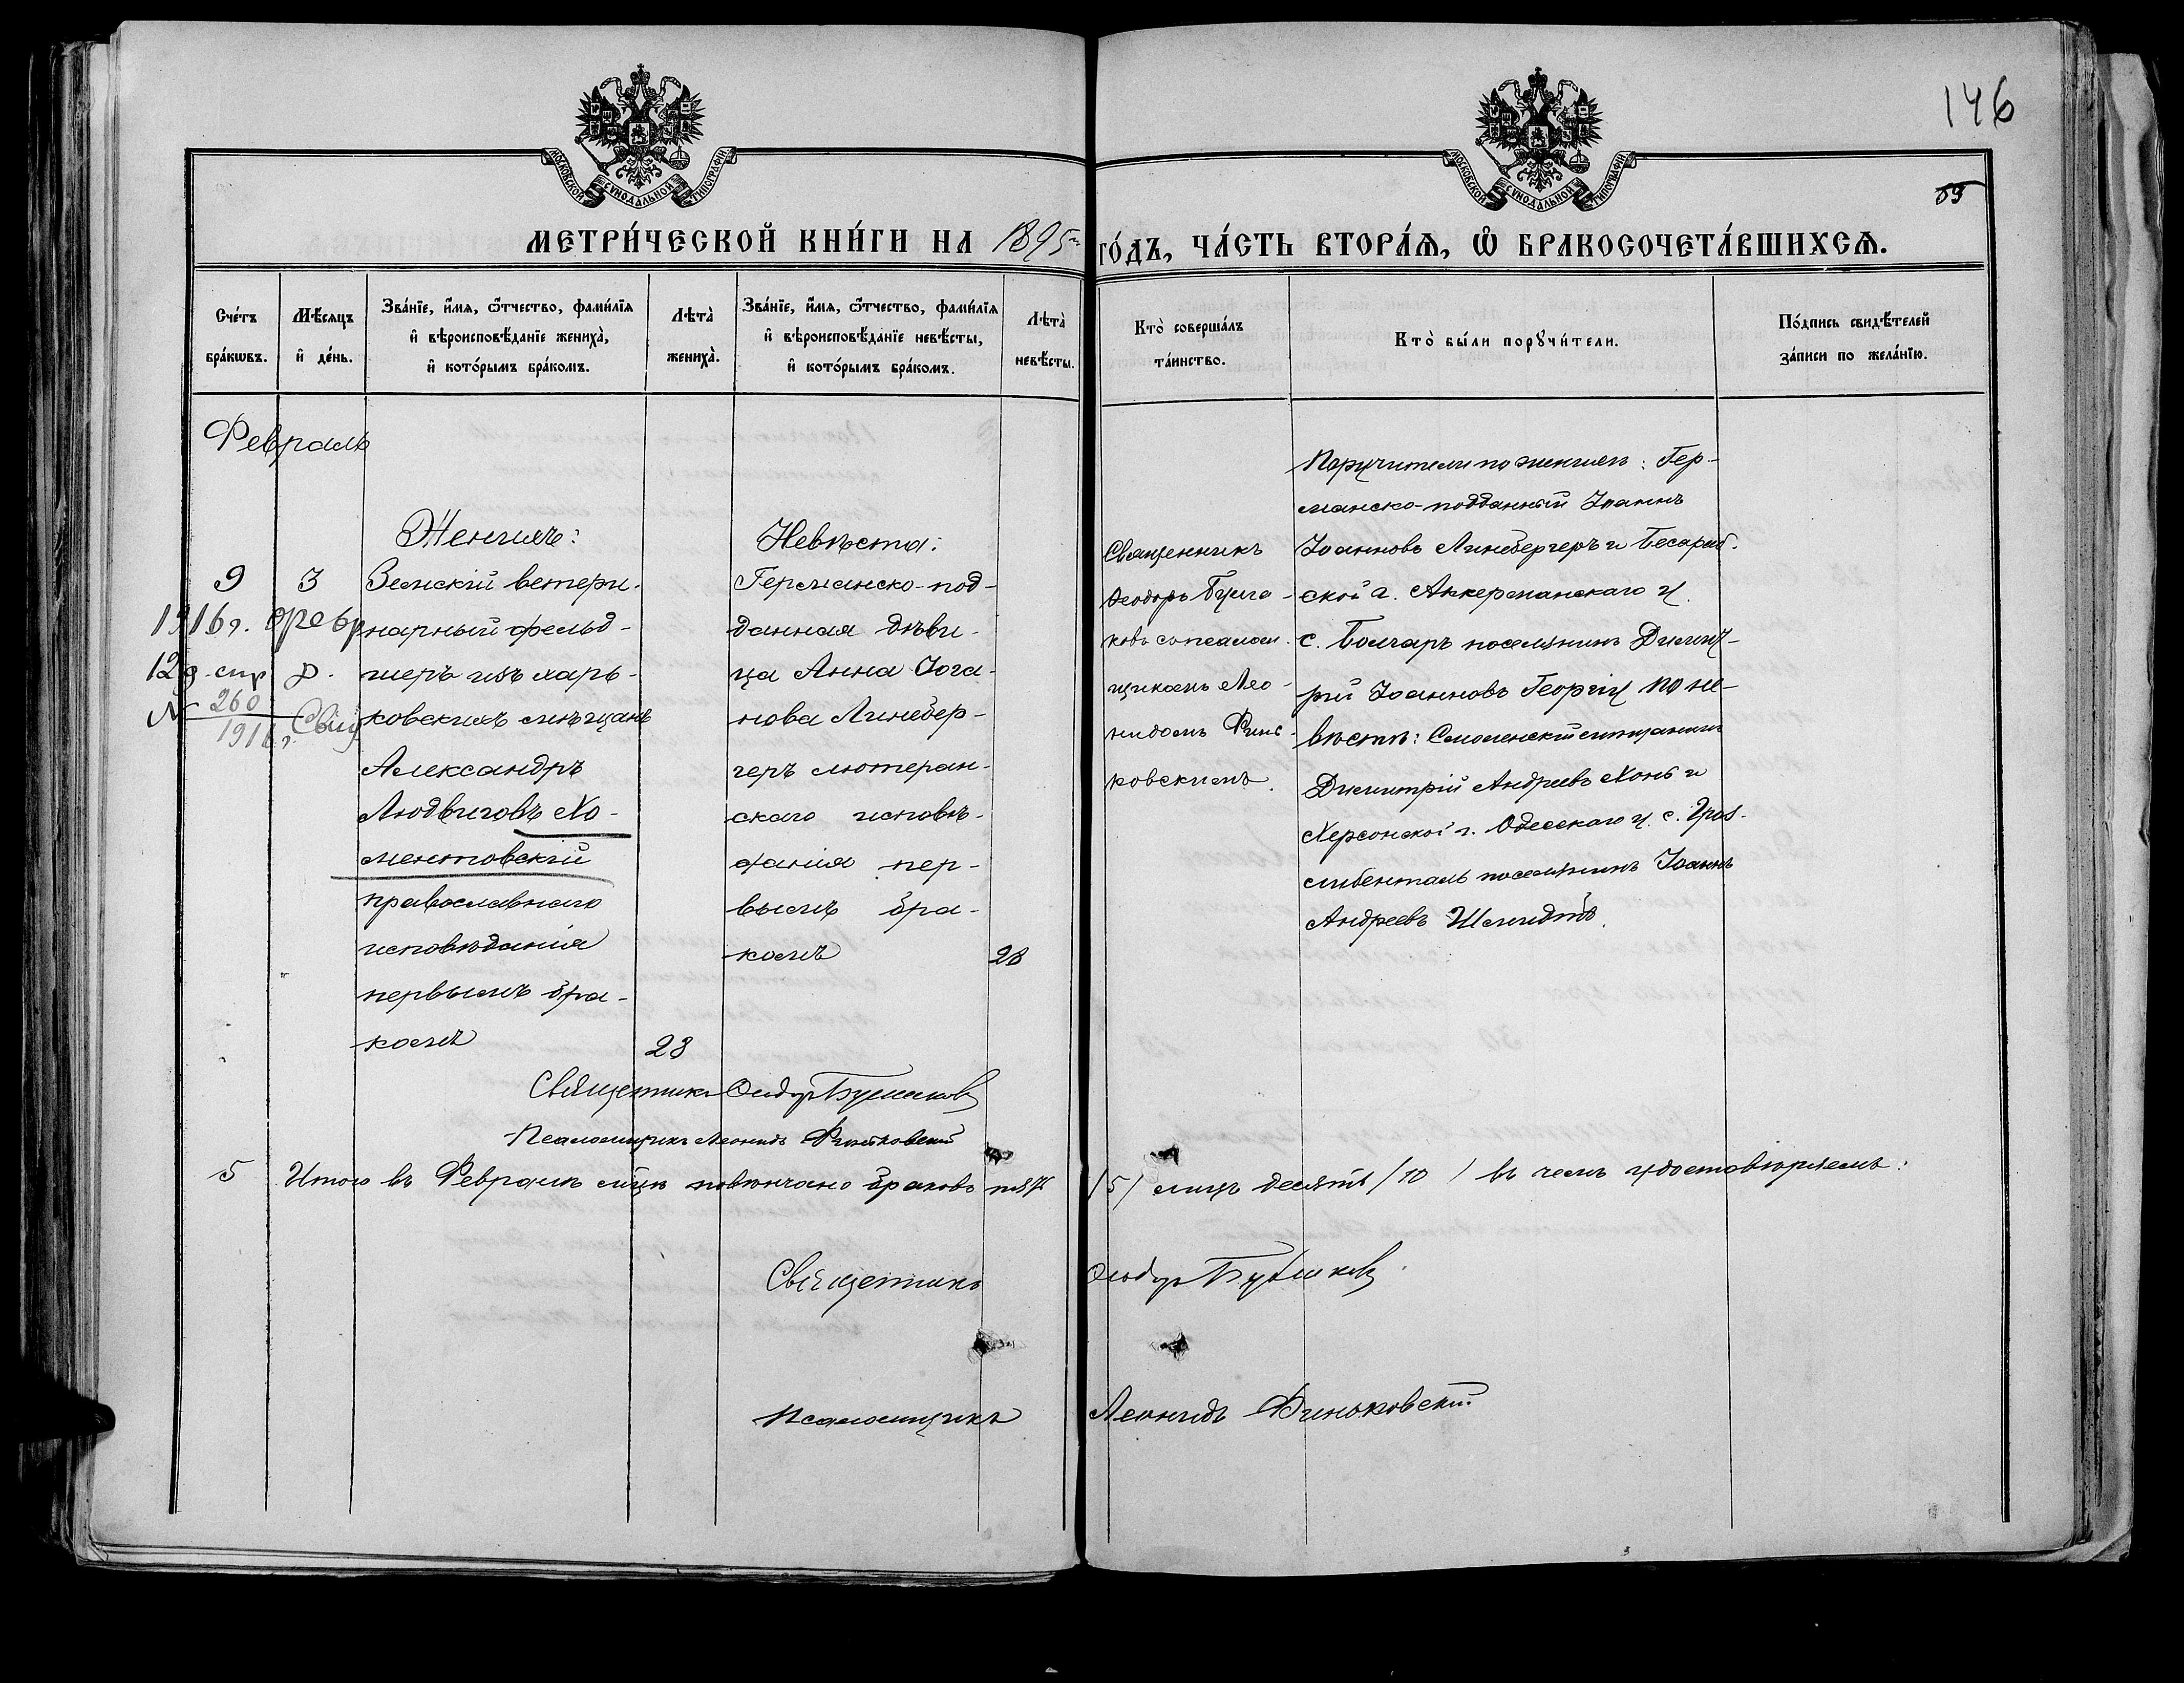 146
59
МОСКОВСКОЙ СѴНОДАЛЬНОЙ ТИПОГРАФІИ
МОСКОВСКОЙ СѴНОДАЛЬНОЙ ТИПОГРАФІИ
МЕТРИ́ЧЕСКОЙ КНИ́ГИ НА 1895 ГО́ДЪ, ЧА́СТЬ ВТОРА́Я, Ѡ҆ БРАКОСОЧЕТА́ВШИХСЯ.
Сче́тъ бра́кѡвъ.
Мѣ́сяцъ и҆ де́нь.
Зва́нїе, и҆́мя, ѻ҆́тчество, фами́лїя
и҆ вѣроисповѣ́данїе жениха̀,
и҆ кото́рымъ бра́комъ.
Лѣта̀ жениха̀.
Зва́нїе, и҆́мя, ѻ҆́тчество, фами́лїя
и҆ вѣроисповѣ́данїе невѣ́сты,
и҆ кото́рымъ бра́комъ.
Лѣта̀ невѣ́сты.
Кто̀ соверша́лъ
та́инство.
Кто̀ бы́ли порꙋчи́тели.
По́дпись свидѣ́телей
за́писи по жела́нїю.
Февраль
9
3
1916г. февр
12 д. спр
№ 260
1916г.
Женихъ:
Земскій ветери-
нарный фельд-
шеръ изъ харь-
ковскихъ мѣщанъ
Александръ
Людвиговъ Хо-
ментовскій
православнаго
исповѣданія
первымъ бра-
комъ
28
Невѣста:
Германско-под-
данная дѣви-
ца Анна Іога-
нова Линебер-
геръ лютеран-
скаго исповѣ-
данія пер-
вымъ бра-
комъ
28
Священникъ
Ѳеодоръ
ковъ съ псалом-
щикомъ Лео-
нидомъ Финь-
ковскимъ.
Поручители по женихѣ: Гер-
манско-подданный Іоаннъ
Іоанновъ Линебергеръ и Бесараб-
ской г. Аккерманскаго у.
с. Болгаръ поселянинъ Димит-
рій Іоанновъ Георгіу по не-
вѣстѣ: Смоленскій мѣщанинъ
Димитрій Андреевъ Хонь и
Херсонской г. Одесскаго у. с. Грос-
либенталь поселянинъ Іоаннъ
Андреевъ Шмидтъ.
Священникъ Ѳеодоръ
Псаломщикъ Леонидъ Финьковскій
5 Итого въ Февралѣ мцѣ повѣнчано браковъ пять /5/ лицъ десять /10/ въ чемъ удостовѣряемъ:
Священникъ Ѳеодоръ
Псаломщикъ Леонидъ Финьковскій